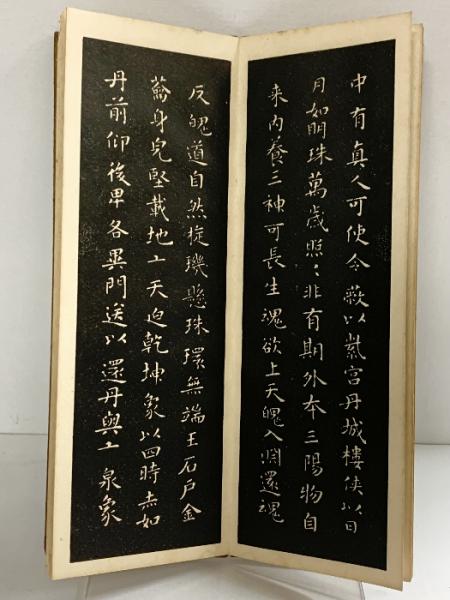 中有真人可使令蔽以紫宮丹城樓侠以日
月如明珠萬歲照〻非有期外本三陽物自
来內養三神可長生魂欲上天魄入淵還魂
反魄道自然㨁璣懸珠環無端玉石戶金
籥身皃堅載地㆐天迫乾坤象以四時赤如
丹前仰後卑各異門送以還丹與㆐泉象